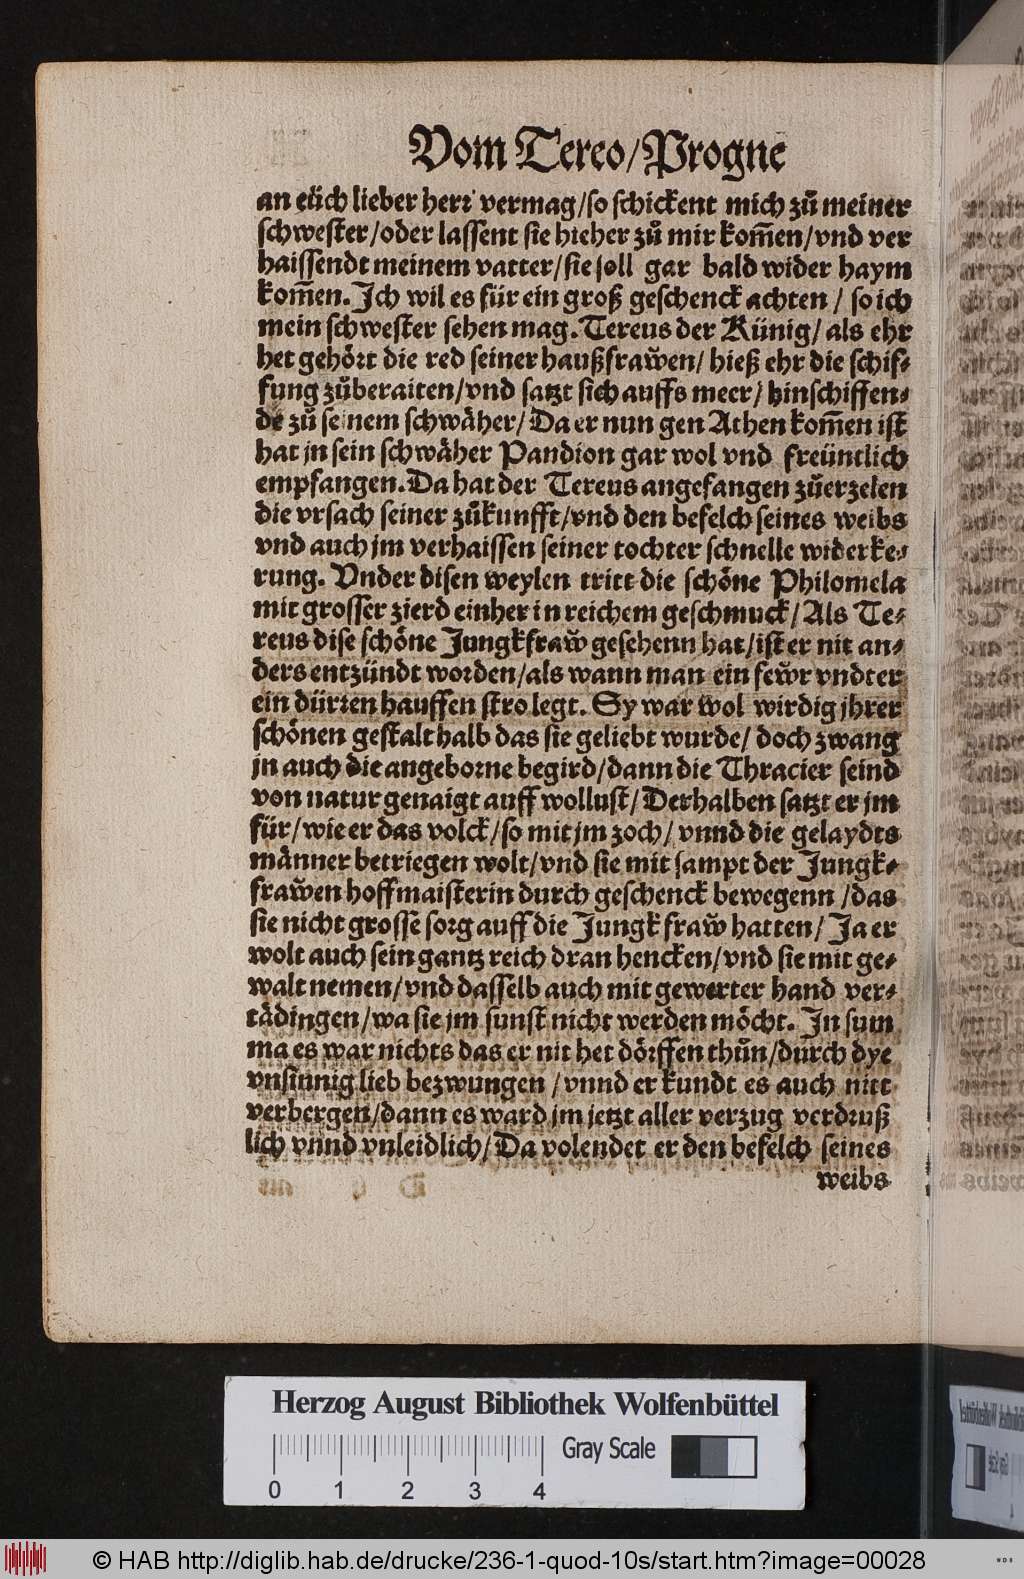 Vom Tereo/Progne
an eüch lieber herꝛ vermag/so schickent mich zů meiner
schwester/oder lassent sie hieher zů mir kom̃en/vnd ver
haissendt meinem vatter/sie soll gar bald wider haym
kom̃en. Ich wil es für ein groß geschenck achten / so ich
mein schwester sehen mag. Tereus der Künig/ als ehr
het gehöꝛt die red seiner haußfraw̆en/ hieß ehr die schif⸗
fung zůberaiten/vnd satzt sich auffs meer/ hinschiffen⸗
de zů seinem schwäher/ Da er nun gen Athen kom̃en ist
hat jn sein schwäher Pandion gar wol vnd freüntlich
empfangen. Da hat der Tereus angefangen zůerzelen
die vrsach seiner zůkunfft/vnd den befelch seines weibs
vnd auch jm verhaissen seiner tochter schnelle widerke⸗
rung. Vnder disen weylen tritt die schöne Philomela
mit grosser zierd einher in reichem geschmuck/ Als Te⸗
reus dise schöne Jungkfraw̆ gesehenn hat/ist er nit an⸗
ders entzündt woꝛden/als wann man ein few̆r vndter
ein dürꝛen hauffen stro legt. Sy war wol wirdig jhrer
schönen gestalt halb das sie geliebt wurde/ doch zwang
jn auch die angeboꝛne begird/dann die Thracier seind
von natur genaigt auff wollust/ Derhalben satzt er jm
für/wie er das volck/so mit jm zoch/ vnnd die gelaydts
männer betriegen wolt/vnd sie mit sampt der Jungk⸗
fraw̆en hoffmaisterin durch geschenck bewegenn /das
sie nicht grosse soꝛg auff die Jungkfraw̆ hatten/ Ja er
wolt auch sein gantz reich dran hencken/vnd sie mit ge⸗
walt nemen/vnd dasselb auch mit gewerter hand ver⸗
tädingen/wa sie jm sunst nicht werden möcht. In sum
ma es war nichts das er nit het döꝛffen thůn/durch dye
vnsinnig lieb bezwungen /vnnd er kundt es auch nitt
verbergen/dann es ward jm jetzt aller verzug verdꝛuß
lich vnnd vnleidlich/Da volendet er den befelch seines
weibs
Herzog August Bibliothek Wolfenbüttel
Gray Scale
0 1 2 3 4
© HAB http://diglib.hab.de/drucke/236-1-quod-10s/start.htm?image=00028